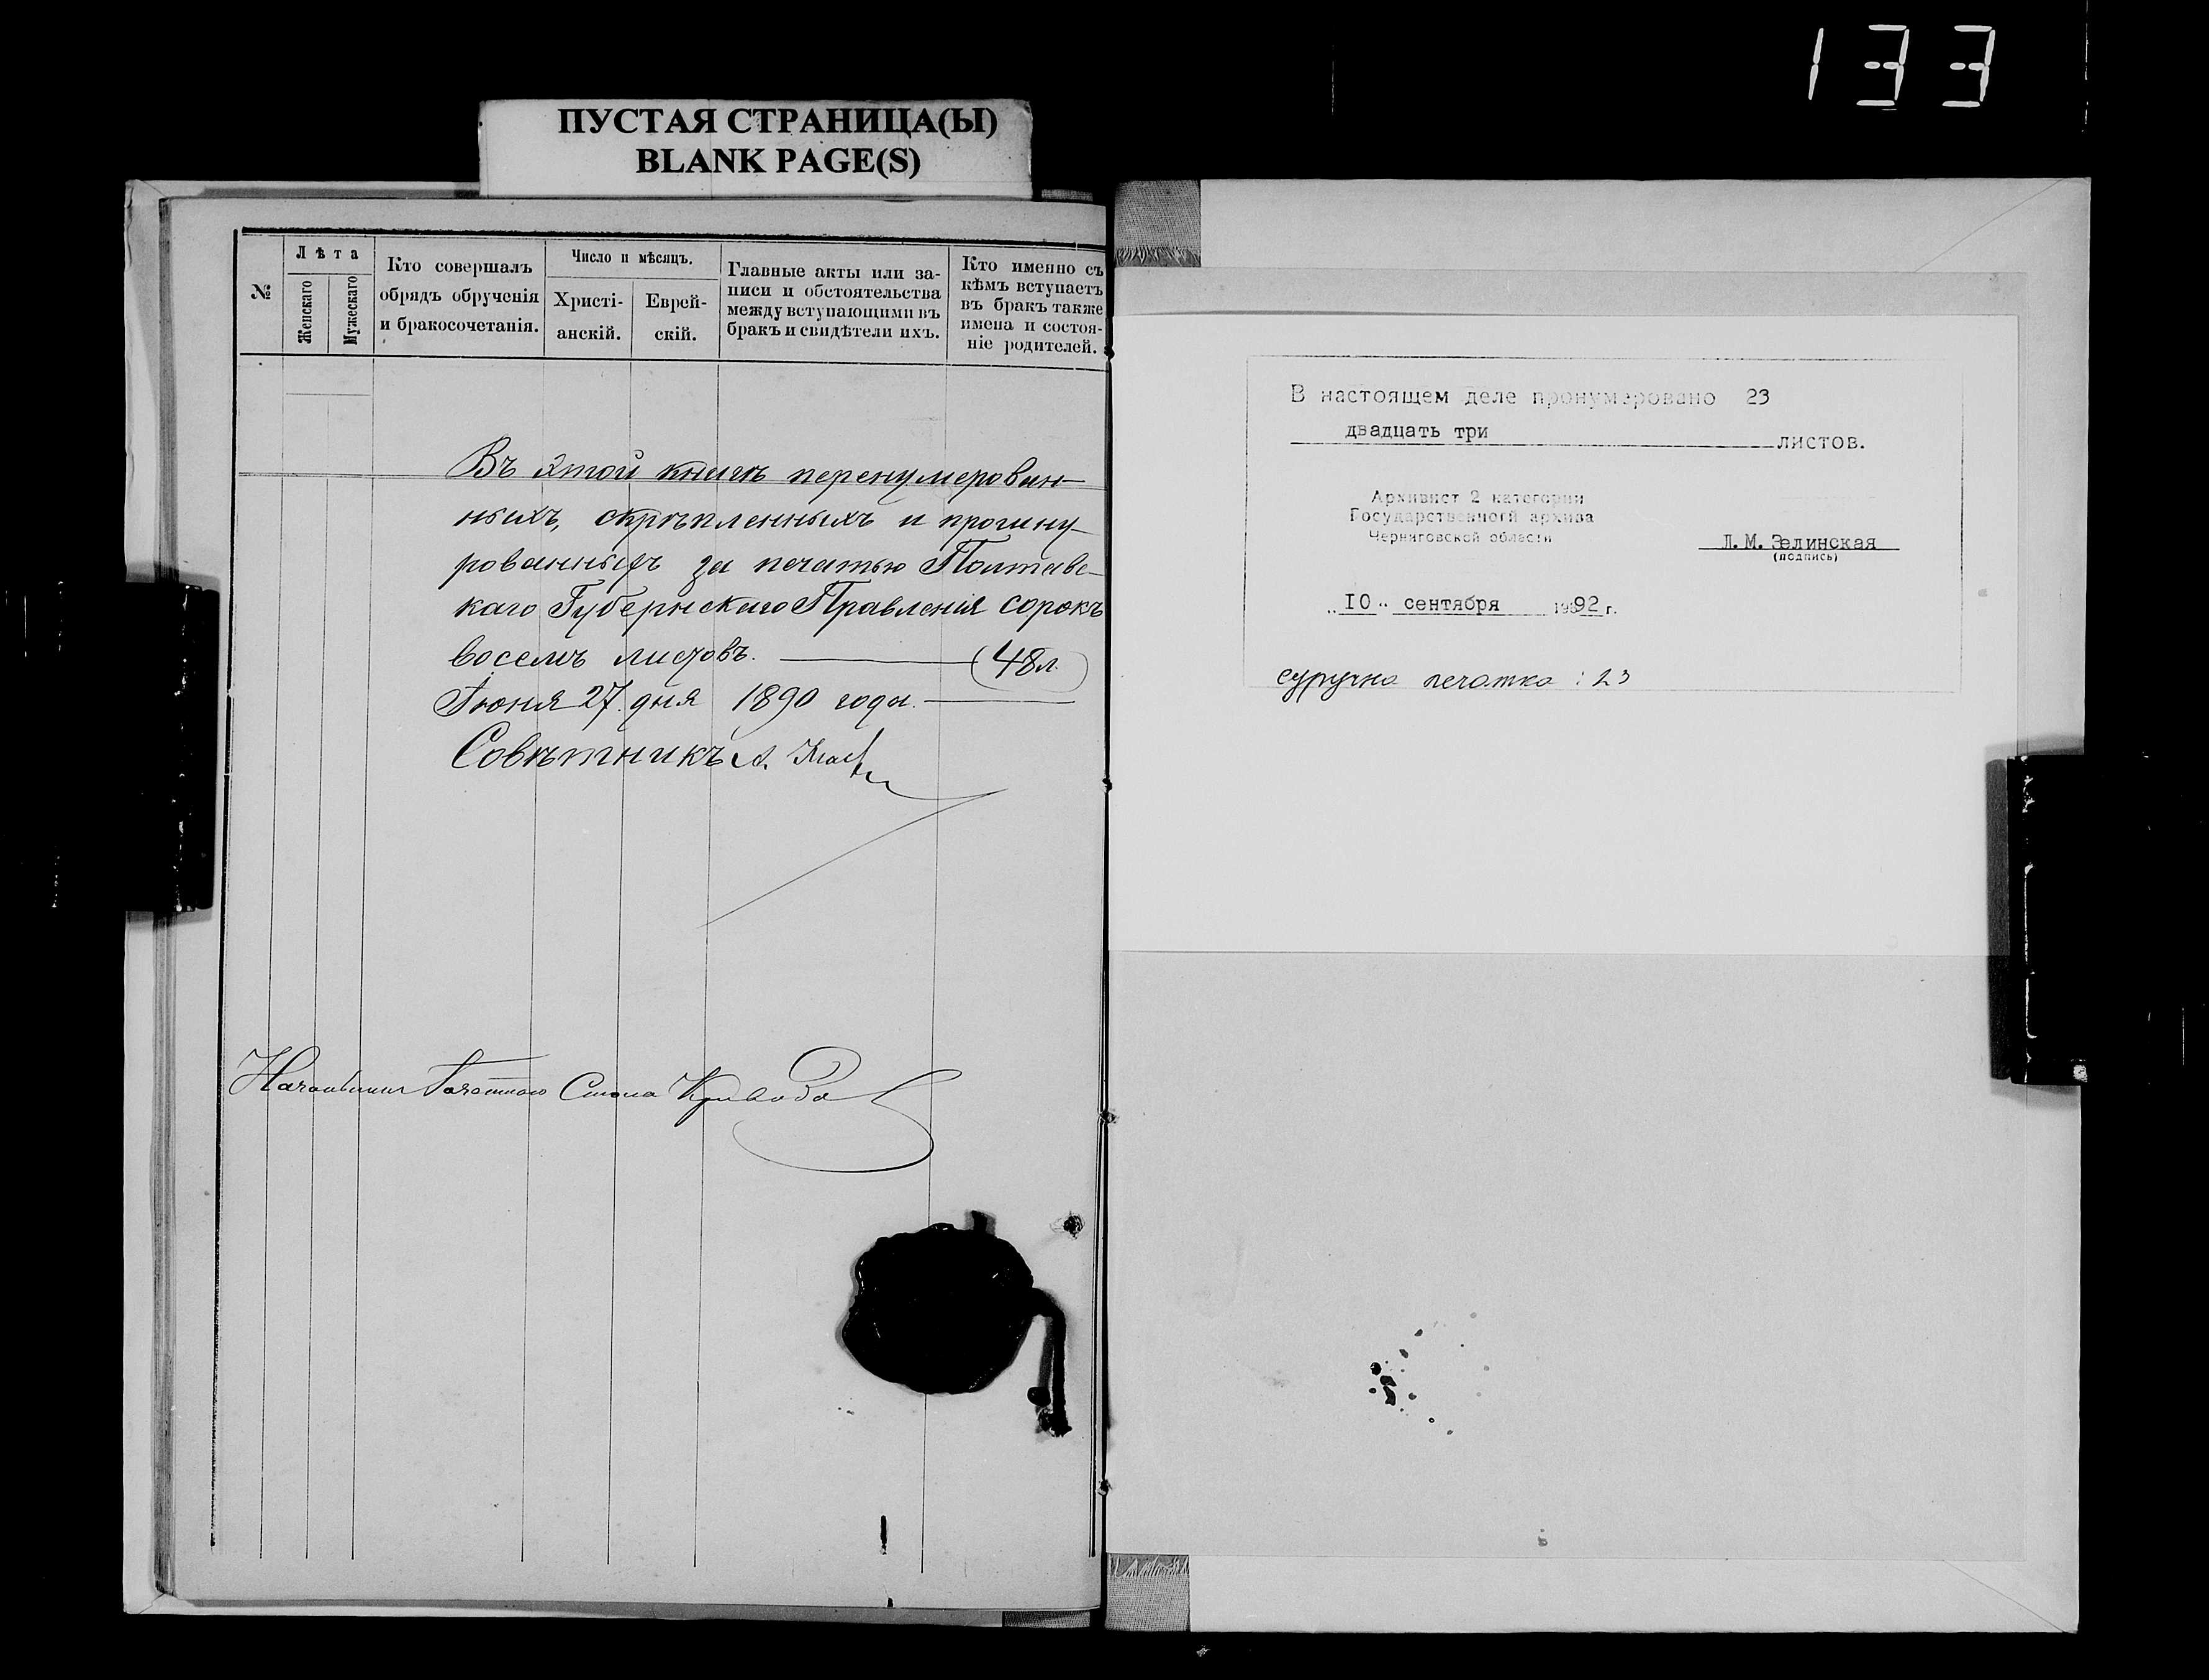 133
ПУСТАЯ СТРАНИЦА(Ы)
BLANK PAGE(S)
№
Лѣта
Женскаго
Мужескаго
Кто совершалъ
обрядъ обрученія
и бракосочетанія.
Число и мѣсяцъ.
Христі-
анскій.
Еврей-
скій.
Главные акты или за-
писи и обстоятельства
между вступающими въ
бракъ и свидѣтели ихъ.
Кто именно съ
кѣмъ вступаетъ
въ бракъ также
имена и состоя-
ніе родителей.
Въ этой книгѣ перенумерован-
ныхъ, скрѣпленныхъ и прошну-
рованныхъ за печатью Полтавс-
каго Губернскаго Правленія сорокъ
восемь листовъ. (48 л.)
Іюня 27 дня 1890 года.
Совѣтникъ А.
Начальникъ Стола
В настоящем деле пронумеровано 23
двадцать три листов.
Архивист 2 категории
Государственного архива
Черниговской области
Л.М.Зелинская
(подпись)
„10" сентября 1992 г.
сургучна печатка : 23